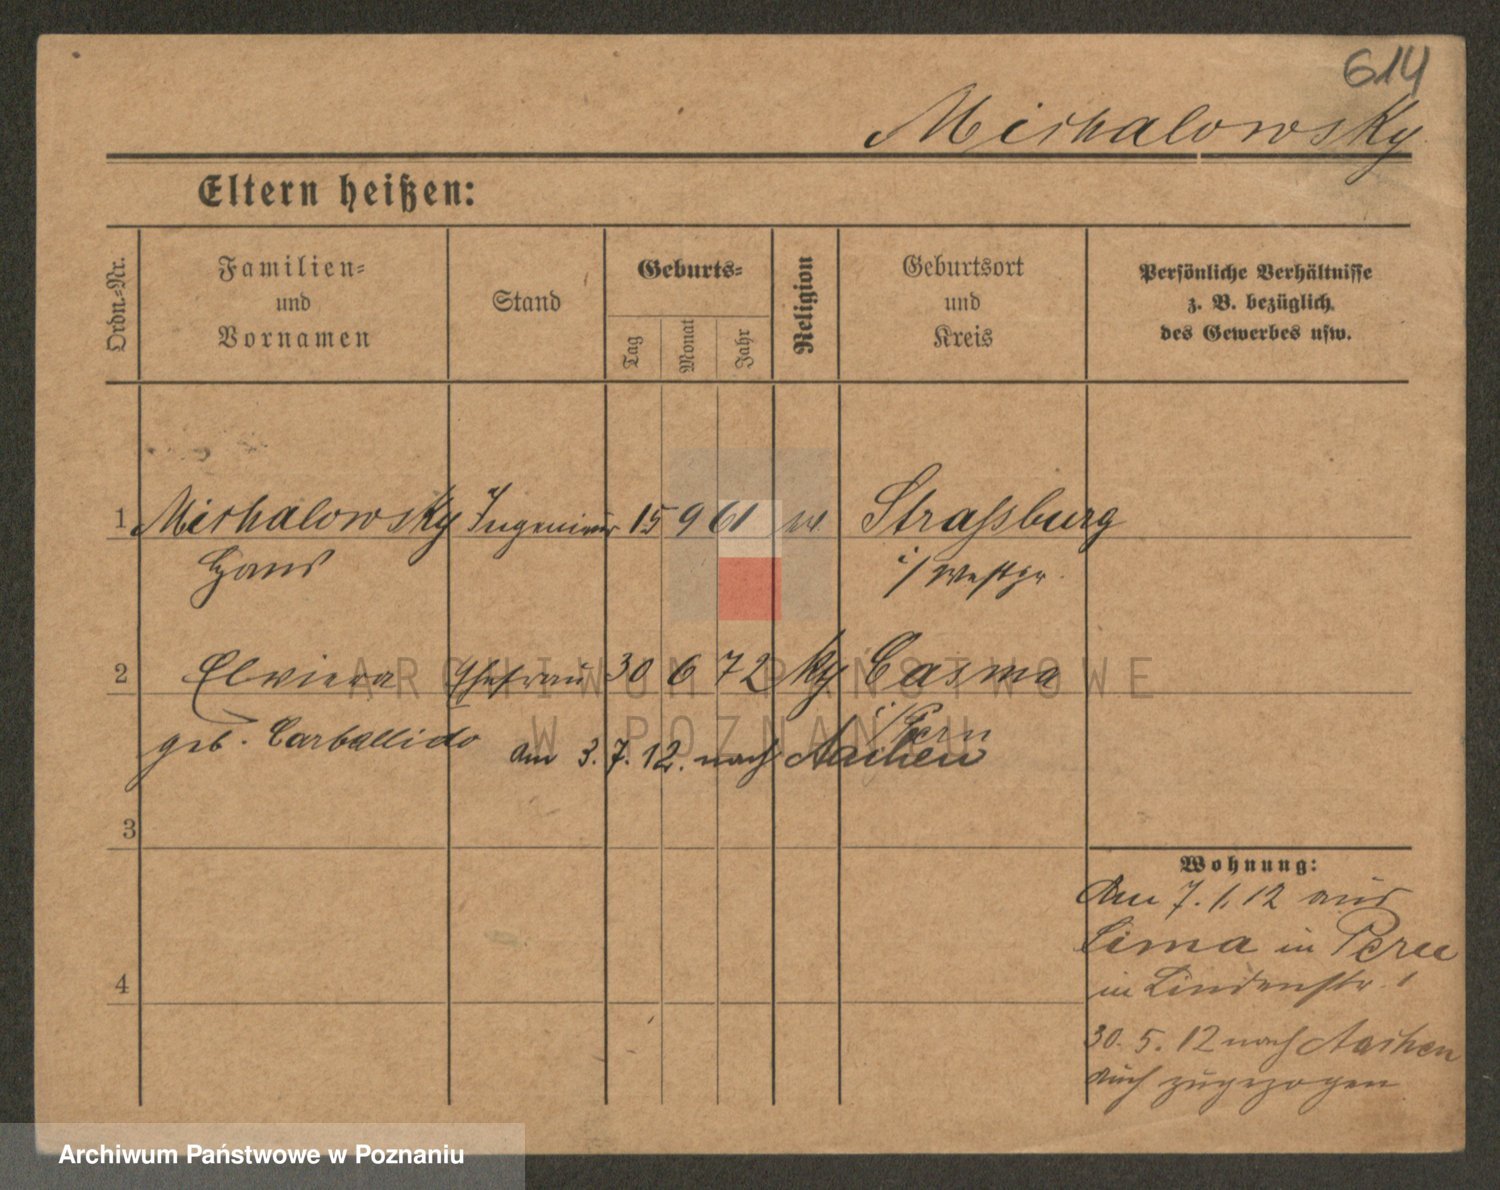 614
Michalowsky
Eltern heißen:
Ordn.-Nr.
Familien-
und
Vornamen
Stand
Geburts-
Tag
Monat
Jahr
Religion
Geburtsort
und
Kreis
Persönliche Verhältnisse
z. B. bezüglich
des Gewerbes usw.
1 Michalowsky Ingenieur 15 9 61 Strassburg
Hans i/ Westpr.
2 Elviera Ehefrau 30 6 72 Casma
i/Peru
geb. Carballido am 3. 7. 12. nach Aachen
3
Wohnung:
Am 7. 1. 12 aus
Lima in Peru
4
in Lindenstr. 1
30. 5. 12 nach Aachen
zugezogen
ARCHIWUM PAŃSTWOWE
W POZNANIU
Archiwum Państwowe w Poznaniu